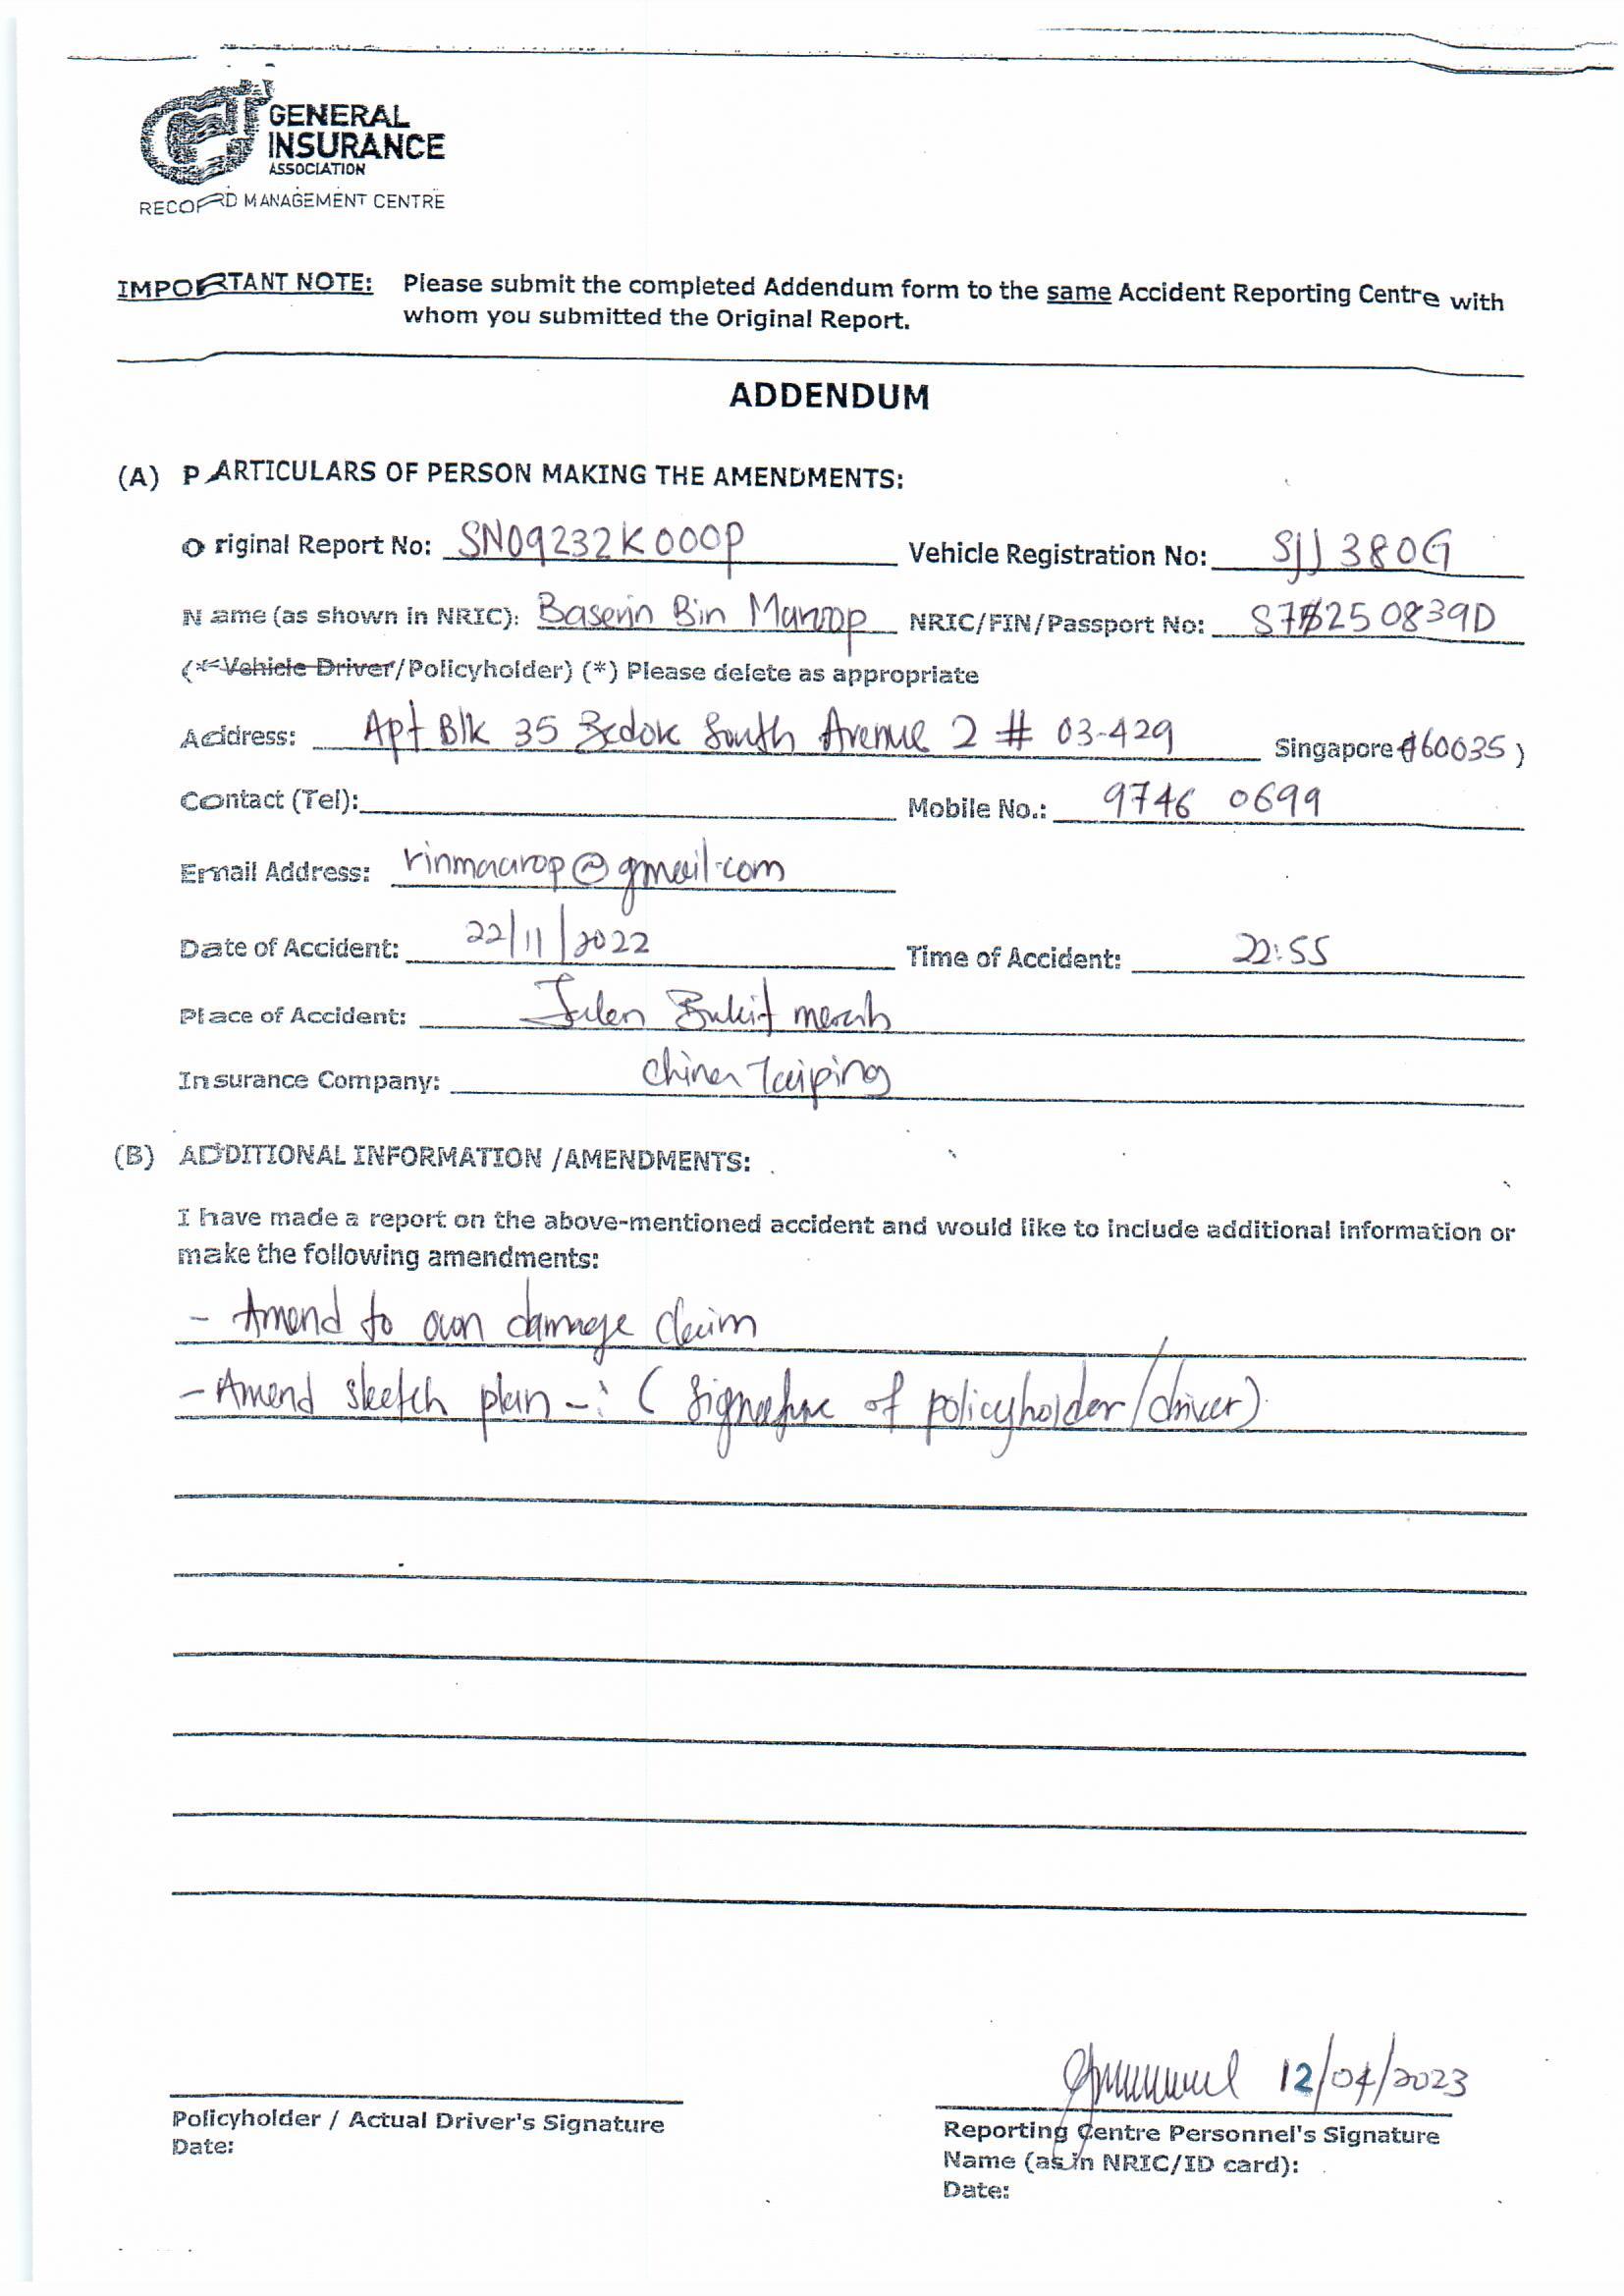 GENERAL
INSURANCE
ASSOCIATION
RECORD MANAGEMENT CENTRE
IMPORTANT NOTE: Please submit the completed Addendum form to the same Accident Reporting Centre with
whom you submitted the Original Report.
ADDENDUM
(A) PARTICULARS OF PERSON MAKING THE AMENDMENTS:
Original Report No: SN09232K000P Vehicle Registration No: SJJ 380G
Name (as shown in NRIC): Baserin Bin Maroop NRIC/FIN/Passport No: S7250839D
(*Vehicle Driver/Policyholder) (*) Please delete as appropriate
Address: Apt Blk 35 Bedok South Avenue 2 # 03-429 Singapore (460035)
Contact (Tel): Mobile No.: 9746 0699
Email Address: rinmaarop@gmail.com
Date of Accident: 22/11/2022 Time of Accident: 22:55
Place of Accident: Jalan Bukit merah
Insurance Company: China Taiping
(B) ADDITIONAL INFORMATION /AMENDMENTS:
I have made a report on the above-mentioned accident and would like to include additional information or
make the following amendments:
- Amend to own damage claim
- Amend sketch plan -: ( Signature of policyholder/driver)
12/04/2023
Policyholder / Actual Driver's Signature
Date:
Reporting Centre Personnel's Signature
Name (as in NRIC/ID card):
Date: